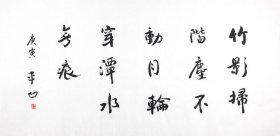 竹影掃
階塵不
動月輪
穿潭水
無痕
庚寅 平凹